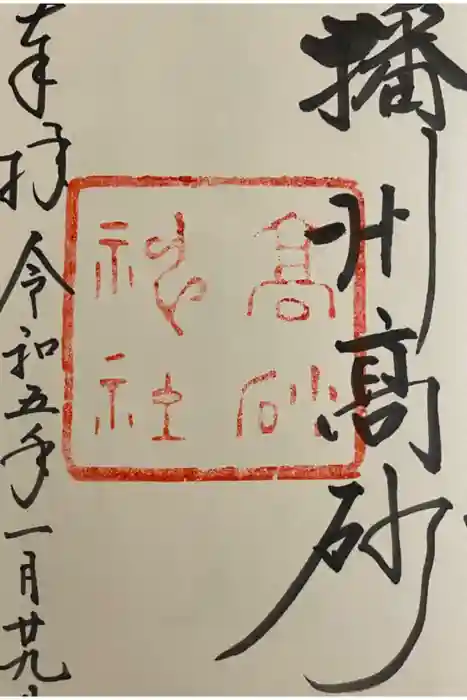 播州高砂
高砂
神社
奉拝 令和五年一月廿九